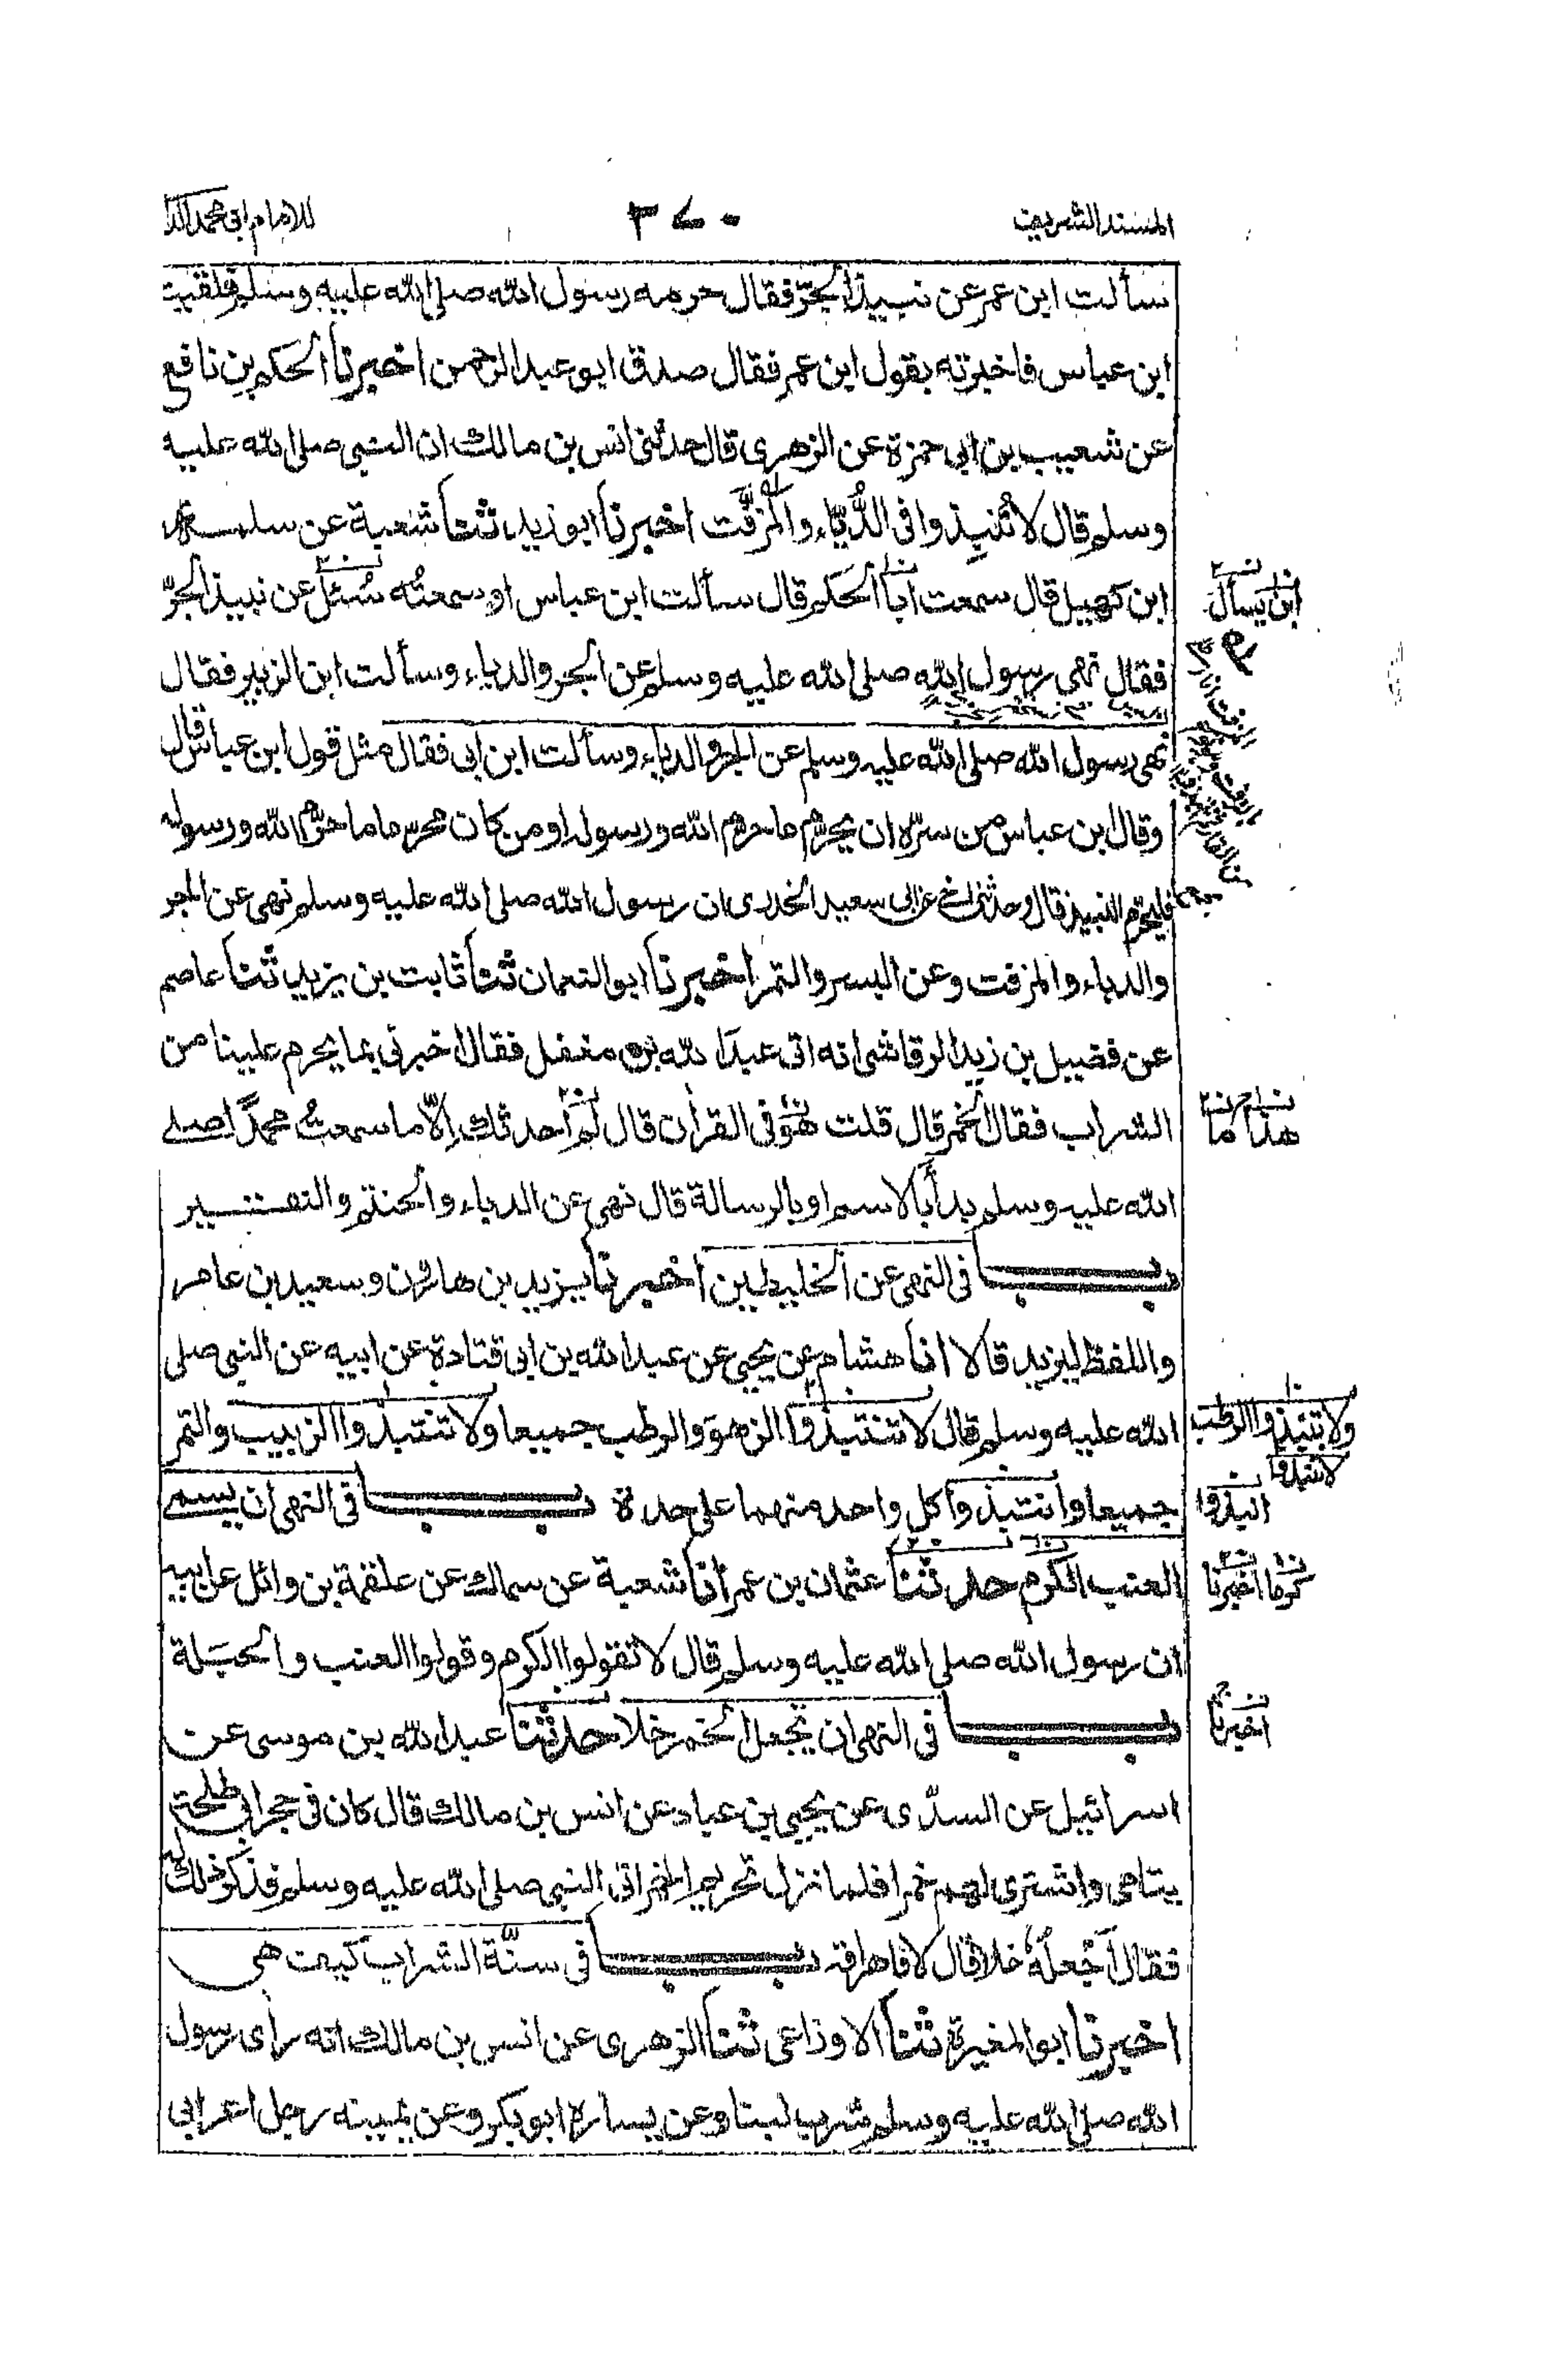 المسند الشريف
٢٧٠
للامام ابى محمد الدا
سألت ابن عمر عن نبيذ الجرّ فقال حرمه رسول الله صلى الله عليه وسلم فلقيت
ابن عباس فاخبرته بقول ابن عمر فقال صدق ابو عبد الرحمن اخبرنا الحكم بن نافع
عن شعيب بن ابى حمزة عن الزهرى قال حدثنى انس بن مالك ان النبى صلى الله عليه
وسلم قال لا تنبذوا فى الدُّبَّاء والمزفَّت اخبرنا ابو زيد ثنا شعبة عن سلمة
ابن كهيل قال سمعت ابا الحكم قال سألت ابن عباس او سمعتُه سُئل عن نبيذ الجرّ
فقال نهى رسول الله صلى الله عليه وسلم عن الجر والدباء وسألت ابن الزبير فقال
نهى رسول الله صلى الله عليه وسلم عن الجر والدباء وسألت ابن ابى فقال مثل قول ابن عباس قال
وقال ابن عباس من سرّه ان يحرّم ما حرم الله ورسوله او من كان محرما ما حرّم الله ورسوله
فليحرّم النبيذ قال وحدثنى اخى عن ابى سعيد الخدرى ان رسول الله صلى الله عليه وسلم نهى عن الجر
والدباء والمزفت وعن البسر والتمر اخبرنا ابو النعمان ثنا ثابت بن يزيد ثنا عاصم
عن فضيل بن زيد الرقاشى انه اتى عبد الله بن مغفل فقال اخبرنى بما يحرم علينا من
الشراب فقال الخمر قال قلت هو فى القرأن قال لم احدثك الّا ما سمعتُ محمدًا صلى
الله عليه وسلم بدأ بالاسم او بالرسالة قال نهى عن الدباء والحنتم والنقير
باب فى النهى عن الخليطين اخبرنا يزيد بن هارون وسعيد بن عامر
واللفظ ليزيد قالا انا هشام عن يحيى عن عبد الله بن ابى قتادة عن ابيه عن النبى صلى
الله عليه وسلم قال لا تنتبذوا الزهو والرطب جميعا ولا تنتبذوا الزبيب والتمر
جميعا وانتبذوا كل واحد منهما على حدة باب فى النهى ان يسمى
العنب الكرم حدثنا عثمان بن عمر انا شعبة عن سماك عن علقمة بن وائل عن ابيه
ان رسول الله صلى الله عليه وسلم قال لا تقولوا الكرم وقولوا العنب والحبَلة
باب فى النهى ان يجعل الخمر خلا حدثنا عبد الله بن موسى عن
اسرائيل عن السدّى عن يحيى بن عباد عن انس بن مالك قال كان فى حجر ابى طلحة
يتامى واشترى لهم خمرا فلما نزل تحريم الخمر اتى النبى صلى الله عليه وسلم فذكر ذلك له
فقال اَجْعلُهُ خلا قال لا فاهراقه باب فى سنّة الشراب كيف هى
اخبرنا ابو المغيرة ثنا الاوزاعى ثنا الزهرى عن انس بن مالك انه رأى رسول
الله صلى الله عليه وسلم شرب لبنا وعن يساره ابو بكر وعن يمينه رجل اعرابى
يسأل
هذا ما
ولا تنبذوا الرطب
لا تنبذوا
انبذوا
كرما اخبرنا
اخبرنا